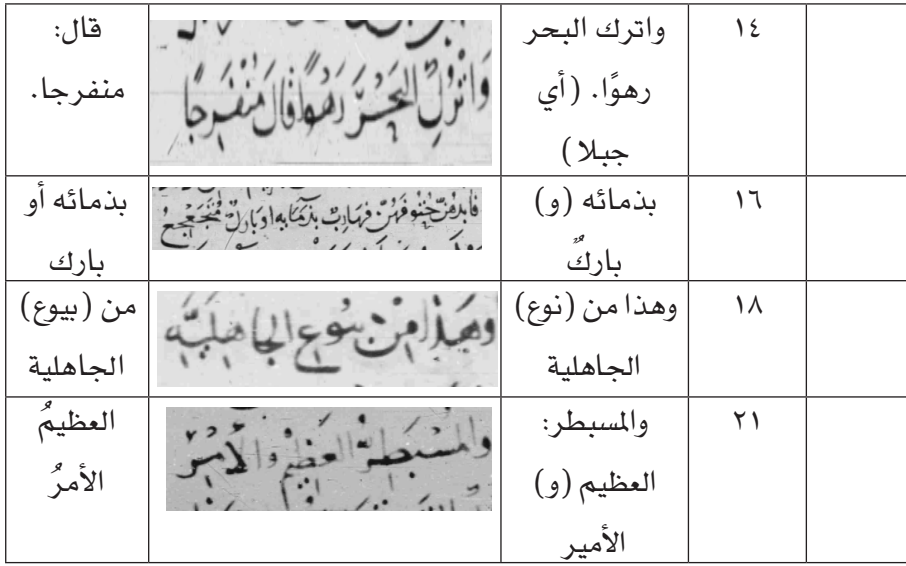 ١٤
واترك البحر
رهوًا. (أي
جبلا)
وَاتْرُكِ الْبَحْرَ رَهْوًا قَالَ مُنْفَرِجًا
قال:
منفرجا.
١٦
بذمائه (و)
باركٌ
فَأَبَدَّهُنَّ حُتُوفَهُنَّ فَهَارِبٌ بِذَمَائِهِ أَوْ بَارِكٌ مُتَجَعْجِعُ
بذمائه أو
بارك
١٨
وهذا من (نوع)
الجاهلية
وَهَذَا مِنْ بيُوعِ الجَاهِليَّةِ
من (بيوع)
الجاهلية
٢١
والمسبطر:
العظيم (و)
الأمير
والمُسْبَطِرُّ العَظِيمُ والأَمِيرُ
العظيمُ
الأمرُ